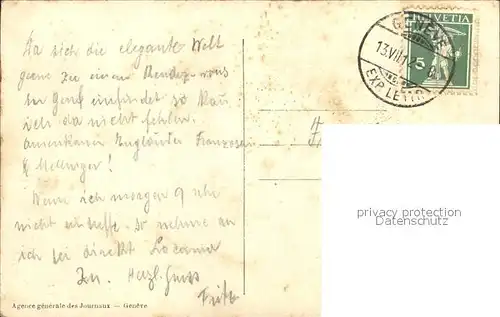 Da sich die elegante Welt
gerne zu einem Rendez-vous
in Genf einfindet so kann
ich da nicht fehlen.
Amerikaner Engländer Franzosen
& Mellinger!
Wenn ich morgen 9 Uhr
nicht eintreffe so nehme an
ich sei direkt Locarno
Herzl. Gruss
Fritz
Agence générale des Journaux — Genève
HELVETIA
5
GENÈVE
13.VII.1
EXP. LETTR.
privacy protection
www.oldthing.de